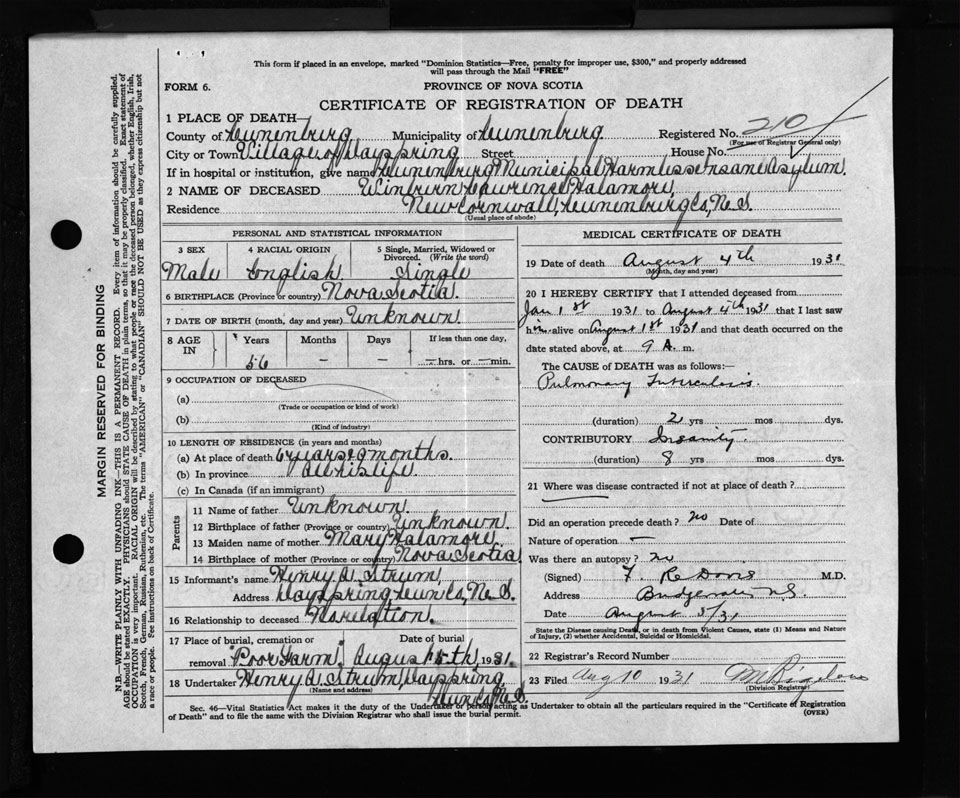 This form if placed in an envelope, marked "Dominion Statistics—Free, penalty for improper use, $300," and properly addressed
will pass through the Mail "FREE"
FORM 6.
PROVINCE OF NOVA SCOTIA
CERTIFICATE OF REGISTRATION OF DEATH
1 PLACE OF DEATH
County of Lunenburg Municipality of Lunenburg Registered No. 210
(For use of Registrar General only)
City or Town Village of Dayspring Street House No.
If in hospital or institution, give name Lunenburg Municipal Harmless Insane Asylum.
2 NAME OF DECEASED Lawrence Halamore
Residence New Cornwall, Lunenburg Co, N.S.
(Usual place of abode)
PERSONAL AND STATISTICAL INFORMATION
3 SEX 4 RACIAL ORIGIN 5 Single, Married, Widowed or
Divorced. (Write the word)
Male English Single
6 BIRTHPLACE (Province or country) Nova Scotia.
7 DATE OF BIRTH (month, day and year) Unknown.
8 AGE IN Years Months Days If less than one day,
56 – – – hrs. or – min.
9 OCCUPATION OF DECEASED
(a)
(Trade or occupation or kind of work)
(b)
(Kind of industry)
10 LENGTH OF RESIDENCE (in years and months)
(a) At place of death 6 years months.
(b) In province all his life
(c) In Canada (if an immigrant)
Parents
11 Name of father Unknown.
12 Birthplace of father (Province or country) Unknown.
13 Maiden name of mother Mary Halamore
14 Birthplace of mother (Province or country) Nova Scotia
15 Informant's name Henry A. Strum,
Address Dayspring Lun Co, N.S.
16 Relationship to deceased No relation.
17 Place of burial, cremation or Date of burial
removal "Poor Farm". August 5th, 1931.
18 Undertaker Henry A. Strum, Dayspring,
(Name and address) Lun Co N.S.
MEDICAL CERTIFICATE OF DEATH
19 Date of death August 4th 1931
(Month, day and year)
20 I HEREBY CERTIFY that I attended deceased from
Jan 1st 1931 to August 4th 1931 that I last saw
him alive on August 1st 1931 and that death occurred on the
date stated above, at 9 A. m.
The CAUSE of DEATH was as follows:—
Pulmonary Tuberculosis.
(duration) 2 yrs mos dys.
CONTRIBUTORY Insanity.
(duration) 8 yrs mos dys.
21 Where was disease contracted if not at place of death?
Did an operation precede death? no Date of
Nature of operation –
Was there an autopsy? no
(Signed) F. M.D.
Address Bridgewater N.S.
Date August 5/31
State the Disease causing Death, or in death from Violent Causes, state (1) Means and Nature
of Injury, (2) whether Accidental, Suicidal or Homicidal.
22 Registrar's Record Number
23 Filed Aug 10 1931
(Division Registrar)
Sec. 46—Vital Statistics Act makes it the duty of the Undertaker or person acting as Undertaker to obtain all the particulars required in the "Certificate of Registration
of Death" and to file the same with the Division Registrar who shall issue the burial permit.
(OVER)
MARGIN RESERVED FOR BINDING
N.B.—WRITE PLAINLY WITH UNFADING INK—THIS IS A PERMANENT RECORD. Every item of information should be carefully supplied.
AGE should be stated EXACTLY. PHYSICIANS should STATE CAUSE OF DEATH in plain terms, so that it may be properly classified. Exact statement of
OCCUPATION is very important. RACIAL ORIGIN will be described by stating to what people or race the deceased person belonged, whether English, Irish,
Scotch, French, German, Russian, Ruthenian, etc. The terms "AMERICAN" or "CANADIAN" SHOULD NOT BE USED as they express citizenship but not
a race or people. See instructions on back of Certificate.